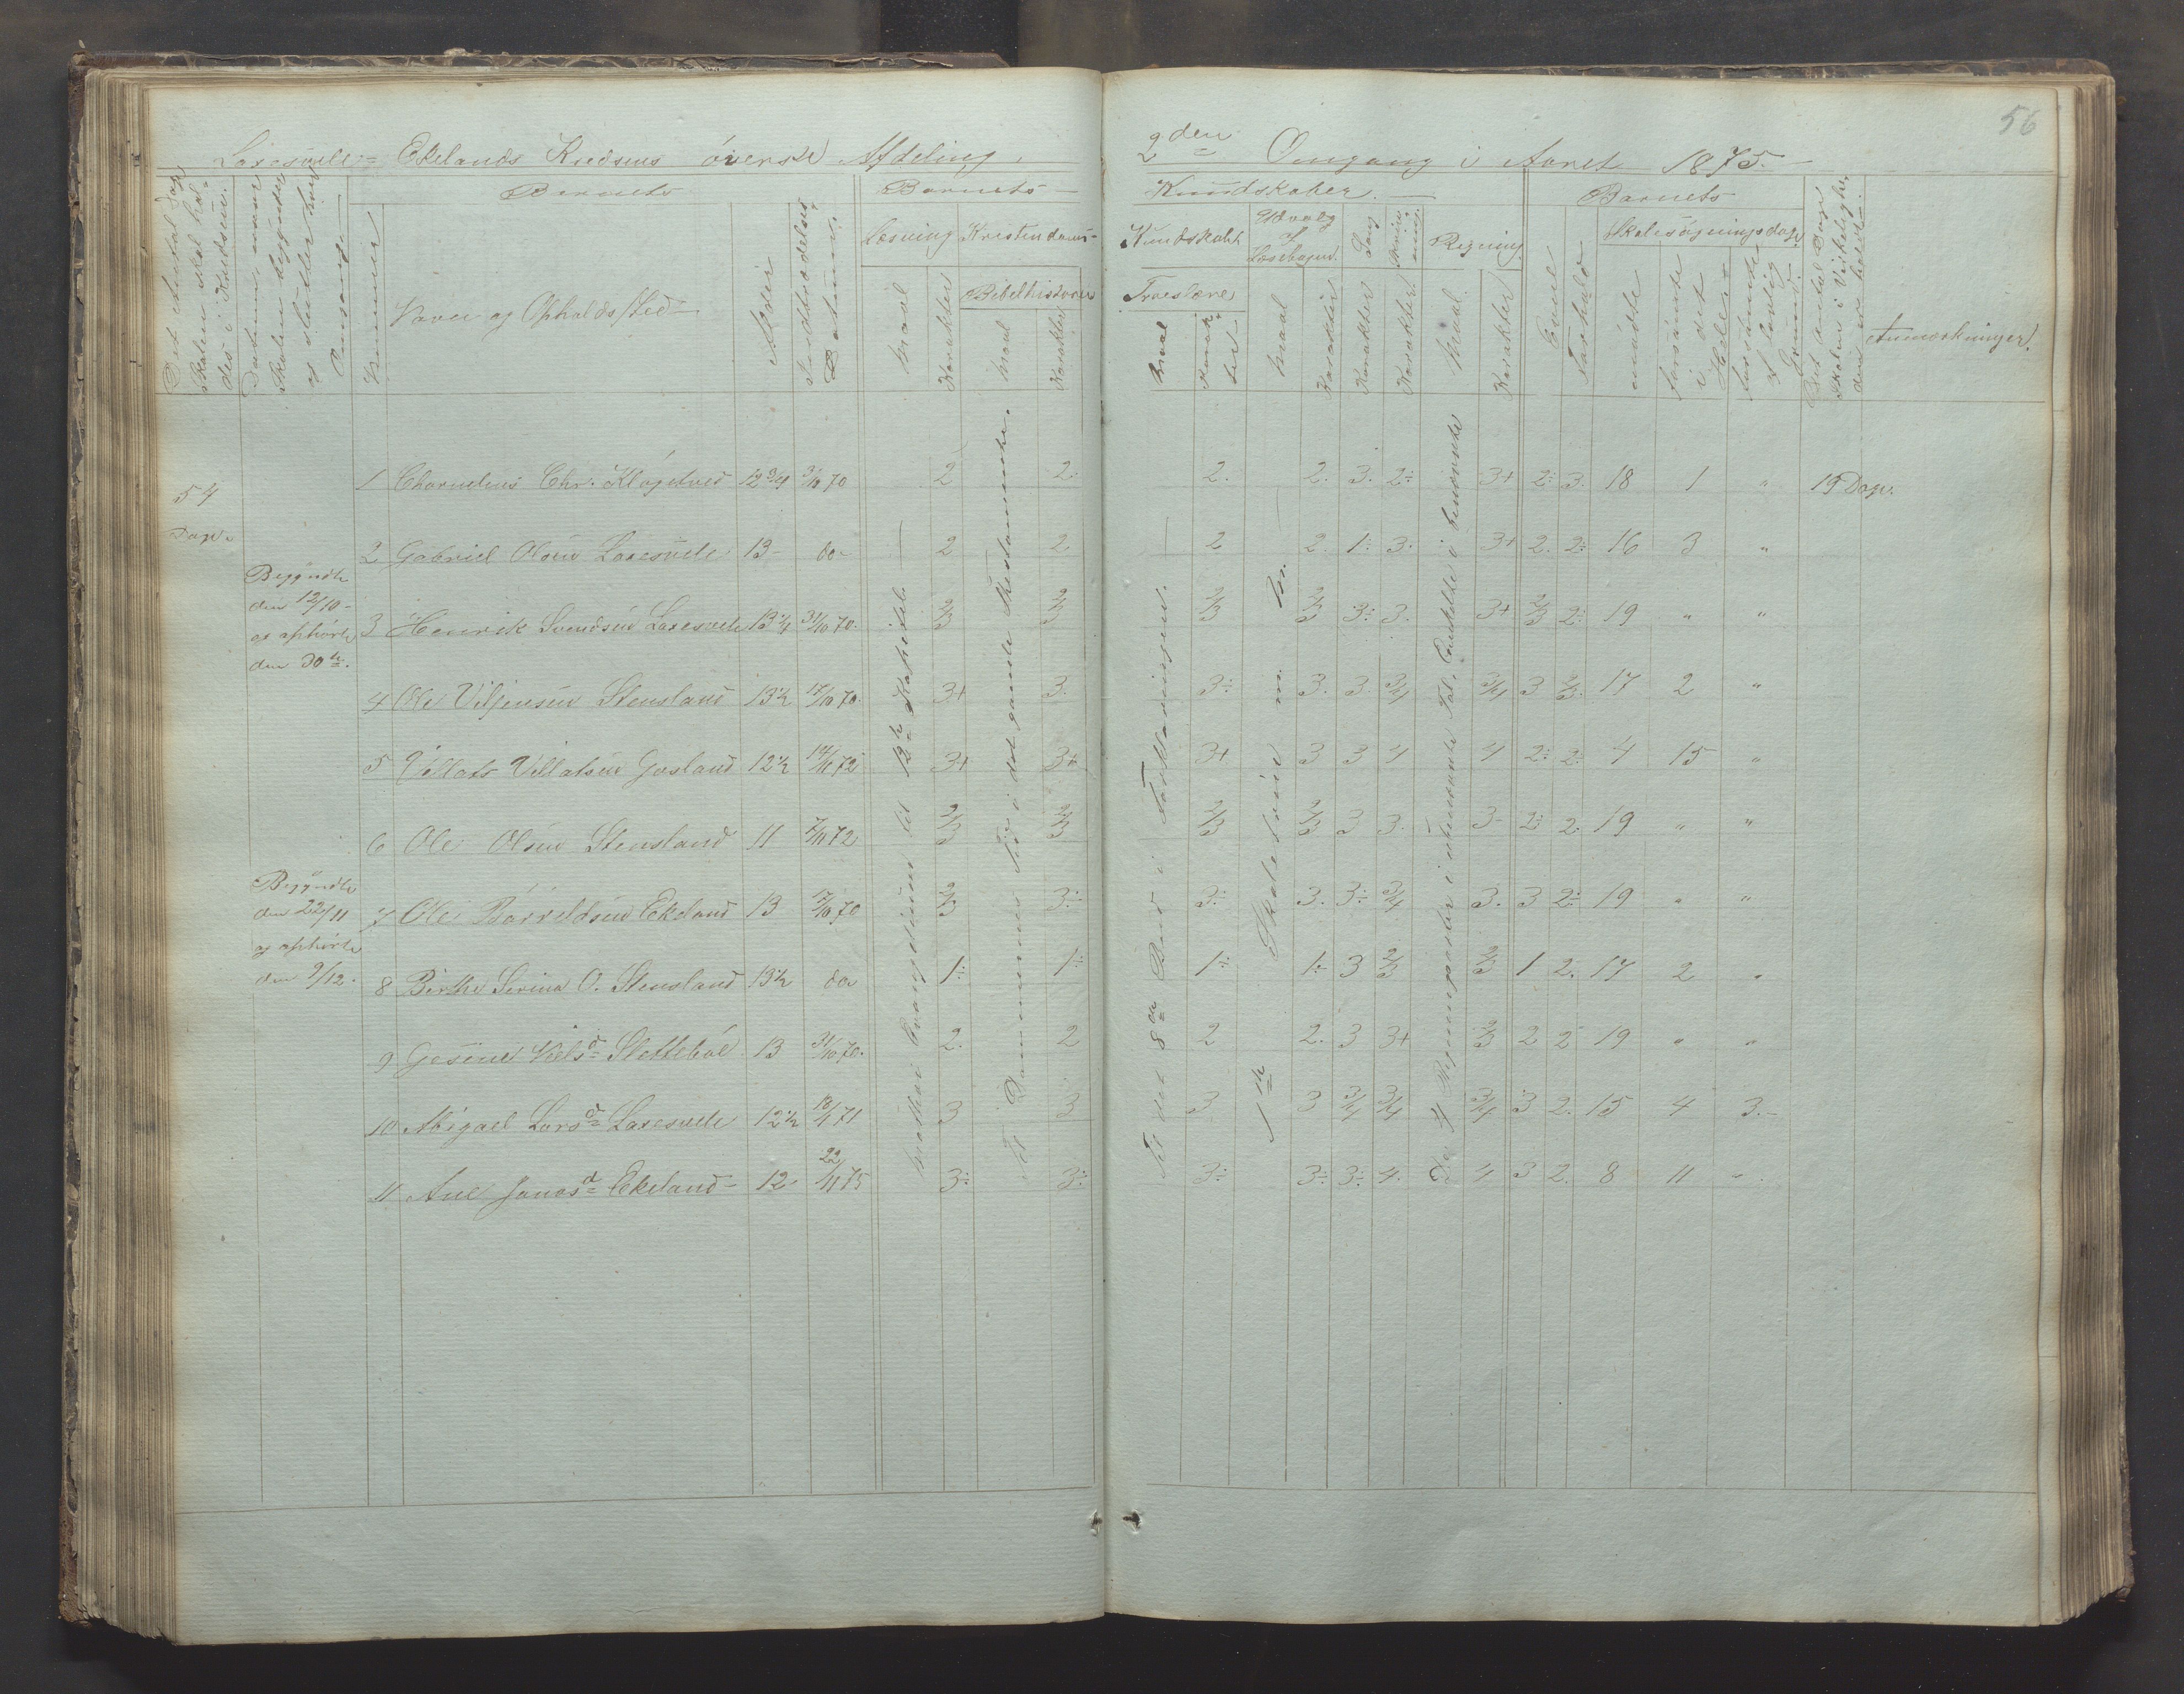 56
Laxesvele - Ekelands Kredsens øverste Afdeling. 2den Omgang i Aaret 1875.
Det Antal Dage Skolen skal holdes i Kredsen.
Datum naar Skolen begynder og slutter hver Omgang
Nummer
Barnets
Navn og Opholds/sted
Alder
Indtrædelses Datum.
Barnets Kundskaber.
Læsning
Maal
Karakter
Kristendoms- Kundskab
Bibelhistorie
Maal
Karakter
Troeslære
Maal
Karakter
Udvalg af Læsebogen.
Maal
Karakter
Sang
Karakter
Skrivning.
Karakter
Regning
Maal
Karakter
Barnets
Evner
Forhold
Skolesøgningsdage
mødte
forsømte i det Hele
forsømte af lovlig Grund.
Det Antal Dage Skolen i Virkelighed er holdt.
Anmærkninger.
54 Dage.
Begyndte den 12/10 og ophørte den 30te.
Begyndte den 22/11 og ophørte den 9/12.
1 Chornelius Chr. Kløgetved 12 3/4 31/10 70 2 2. 2. 2. 3. 2÷ 3+ 2÷ 3. 18 1 " 19 Dage.
2 Gabriel Olsen Laxesvele 13 do 2 2 2 2. 1÷ 3. 3+ 2. 2÷ 16 3 "
3 Henrik Svendsen Laxesvele 13 1/4 31/10 70. 2/3 2/3 2/3 2/3 3÷ 3. 3+ 2/3 2÷ 19 " "
4 Ole Viljensen Stensland 13 1/2 17/10 70. 3+ 3. 3÷ 3. 3. 3/4 3/4 3 2/3. 17 2 "
5 Villats Villatsen Gosland 12 1/2 14/11 72 3+ 3+ 3+ 3 3 4 4 2÷ 2÷ 4 15 "
6 Ole Olsen Stensland 11 7/11 72 2/3 2/3 2/3 2/3 3 3. 3- 2÷ 2÷ 19 " "
7 Ole Børreldsen Ekeland 13 17/10 70 2/3 3÷ 3÷ 3. 3÷ 3/4 3. 3 2÷ 19 " "
8 Birthe Serina O. Stensland 13 1/2 do 1÷ 1÷ 1÷ 1÷ 3 2/3 2/3 1 2. 17 2 "
9 Gesine Nielsd Slettebøe 13 31/10 70. 2. 2 2 2. 3 3+ 2/3 2 2 19 " "
10 Abigael Larsd Laxesvele 12 1/2 18/4 71 3 3 3 3 3/4 3/4 3/4 3 2. 15 4 3.
11 Ane Jonasd Ekeland 12 22/11 75 3÷ 3÷ 3÷ 3÷ 3÷ 4. 4 3 2. 8 11 "
Matthæi Evangelium til 12te Kapitel.
Til Dommernes Tid i det gamle Testamente.
Til det 8de Bud i Forklaringen.
1te Skoletrin m. m.
De 4 Regningsarter i ubenævnte Tal, Enkelte i benævnte